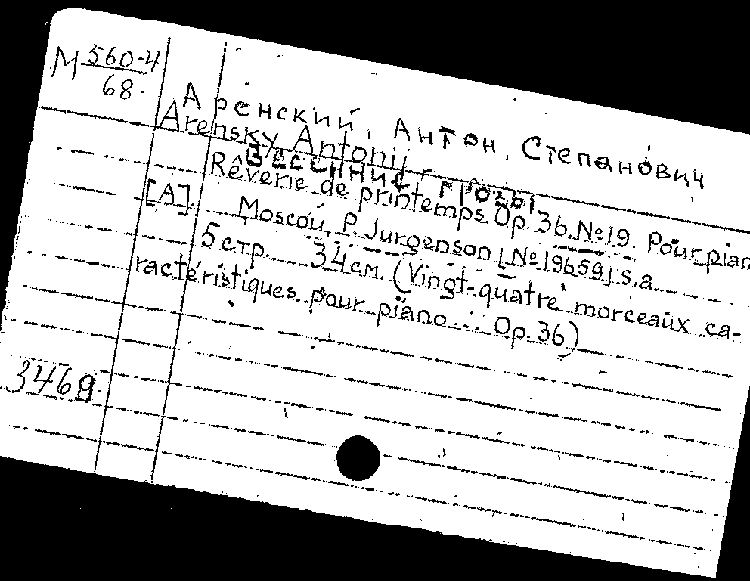 М 560-4
68.
Аренский, Антон, Степанович
Arensky Antonij
Весенние грозы
Rêverie de printemps. Op. 36. №19. Pour pian
[A] Moscou, P. Jurgenson [№19659] s.a.
5 стр. 34 см. (Vingt-quatre morceaux ca-
ractéristiques pour piano... Op. 36)
3469.